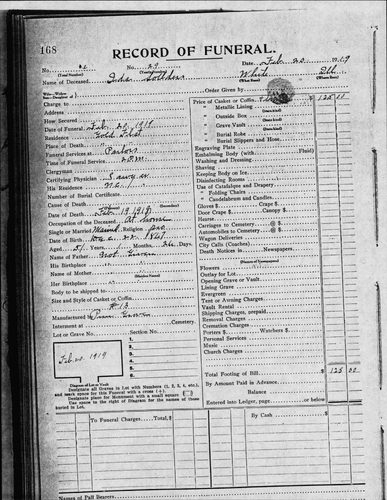 168
RECORD OF FUNERAL.
No. 29 Date Feb. 20 1919
(Total Number) (Yearly Number)
Name of Deceased White Ill
(What Race) (Where Born)
Charge to Order Given by
Address
How Secured
Date of Funeral Feb. 21, 1919
Residence
Place of Death
Funeral Services at Parlors
Time of Funeral Service 2 P.M.
Clergyman
Certifying Physician
His Residence
Number of Burial Certificate
Cause of Death
Date of Death Feb. 19 1919
Occupation of the Deceased At home
Single or Married Religion
Date of Birth Dec. 22, 1867
Aged 51 Years, Months, Days.
Name of Father Not Given
His Birthplace
Name of Mother
Her Birthplace
Body to be shipped to
Size and Style of Casket or Coffin
Manufactured by
Interment at Cemetery
Lot or Grave No. Section No.
Feb. 21, 1919
1.
2.
3.
4.
5.
6.
Diagram of Lot or Vault
Designate all Graves in Lot with Numbers (1, 2, 3, 4, etc.,)
and mark space for this Funeral with a cross (+)
Designate place for Monument with a small square
Use space to the right of Diagram for the names of those
buried in Lot.
Price of Casket or Coffin $ 125 00
" Metallic Lining
" Outside Box
" Grave Vault
" Burial Robe
" Burial Slippers and Hose
Engraving Plate
Embalming Body (with Fluid)
Washing and Dressing
Shaving
Keeping Body on Ice
Disinfecting Rooms
Use of Catafalque and Drapery
" Folding Chairs
" Candelabrum and Candles
Gloves $ Cap $
Door Crape $ Canopy $
Hearse
Carriages to Cemetery @ $
Automobiles to Cemetery @ $
Wagon Deliveries
City Calls (Coaches)
Death Notices in Newspapers
Flowers
Outlay for Lot
Opening Grave or Vault
Lining Grave
Evergreen
Tent or Awning Charges
Vault Rental
Shipping Charges, prepaid
Removal Charges
Cremation Charges
Porters $ Watchers $
Personal Services
Music
Church Charges
Total Footing of Bill $ 125 00
By Amount Paid in Advance
Balance
Entered into Ledger, page or below.
To Funeral Charges, Total, $ By Cash $
Names of Pall Bearers